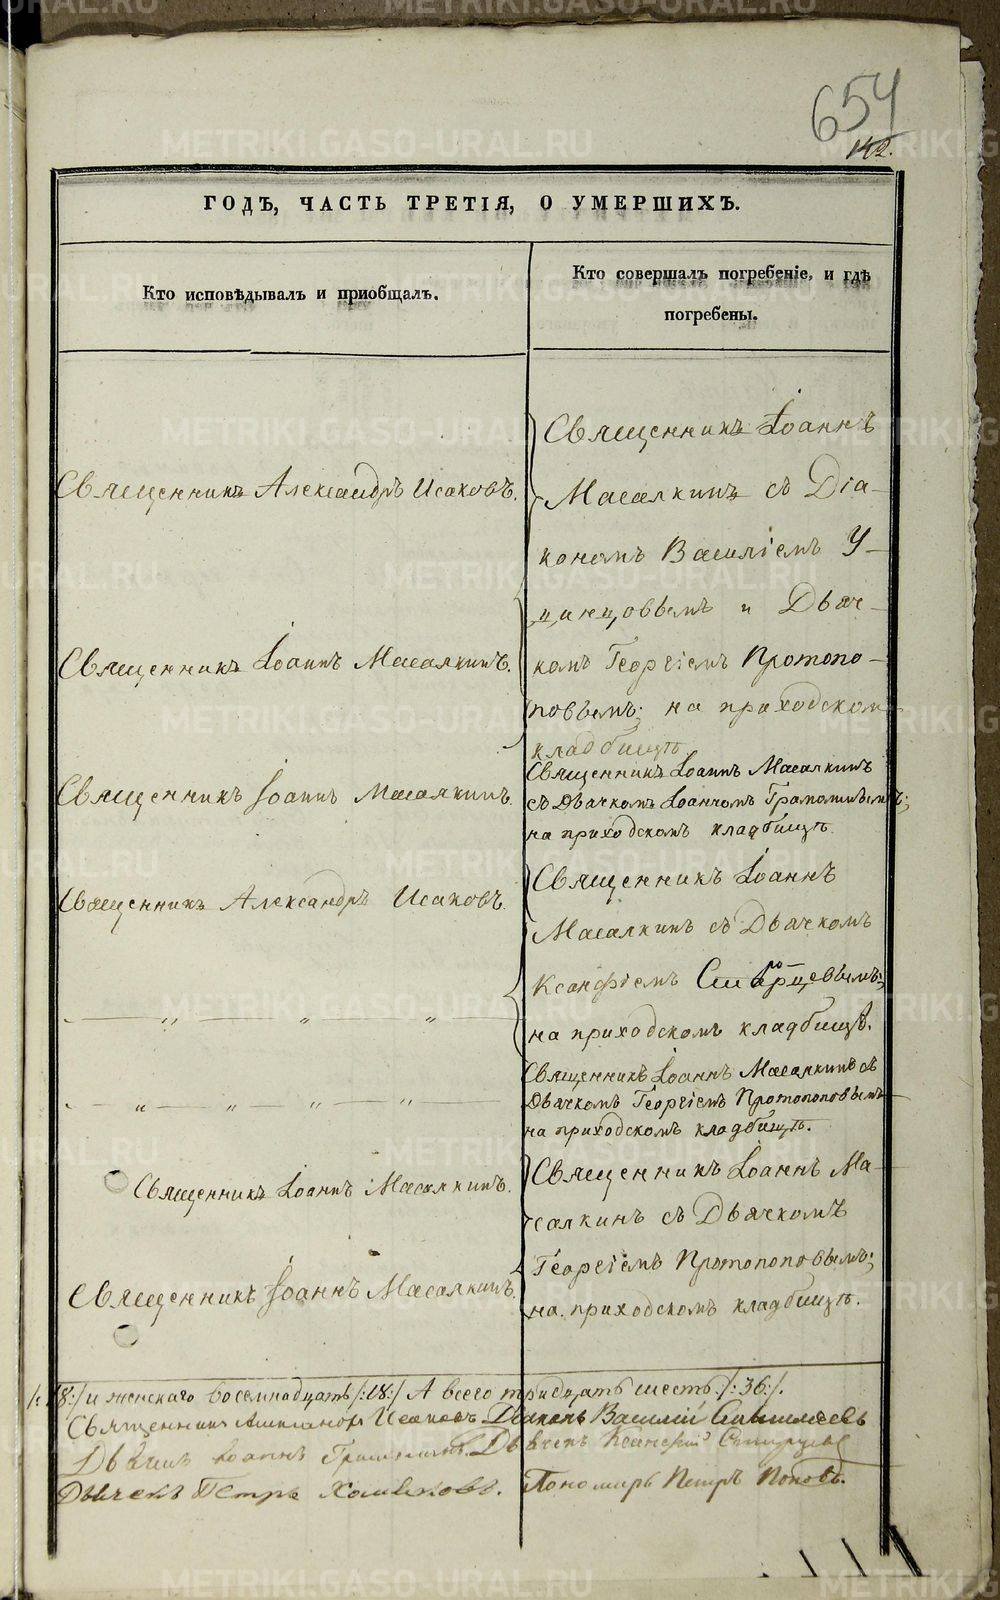 654
142.
ГОДѢ, ЧАСТЬ ТРЕТІЯ, О УМЕРШИХЪ.
Кто исповѣдывалъ и приобщалъ.
Кто совершалъ погребеніе, и гдѣ
погребены.
Священникъ Александръ Исаковъ.
Священникъ Іоаннъ Масалкинъ.
Священникъ Іоаннъ Масалкинъ.
Священникъ Александръ Исаковъ.
— „ — „ — „ —
— „ — „ — „ — „ —
Священникъ Іоаннъ Масалкинъ.
Священникъ Іоаннъ Масалкинъ.
Священникъ Іоаннъ
Масалкинъ съ Діа-
кономъ Василіемъ У-
динцовымъ и Дьяч-
комъ Георгіемъ Протопо-
повымъ; на приходскомъ
кладбищѣ.
Священникъ Іоаннъ Масалкинъ
съ Дьячкомъ Іоанномъ
на приходскомъ кладбищѣ.
Священникъ Іоаннъ
Масалкинъ съ Дьячкомъ
Ксанфіемъ
на приходскомъ кладбищѣ.
Священникъ Іоаннъ Масалкинъ съ
Дьячкомъ Георгіемъ Протопоповымъ
на приходскомъ кладбищѣ.
Священникъ Іоаннъ Ма-
салкинъ съ Дьячкомъ
Георгіемъ Протопоповымъ;
на приходскомъ кладбищѣ.
/:18:/ и женскаго восемнадцать /:18:/ А всего тридцать шесть /:36:/.
Священникъ Александръ Исаковъ. Діаконъ Василій
Дьячекъ Іоаннъ Дьячекъ
Дьячекъ Петръ Хомяковъ. Пономарь Петръ Поповъ.
METRIKI.GASO-URAL.RU